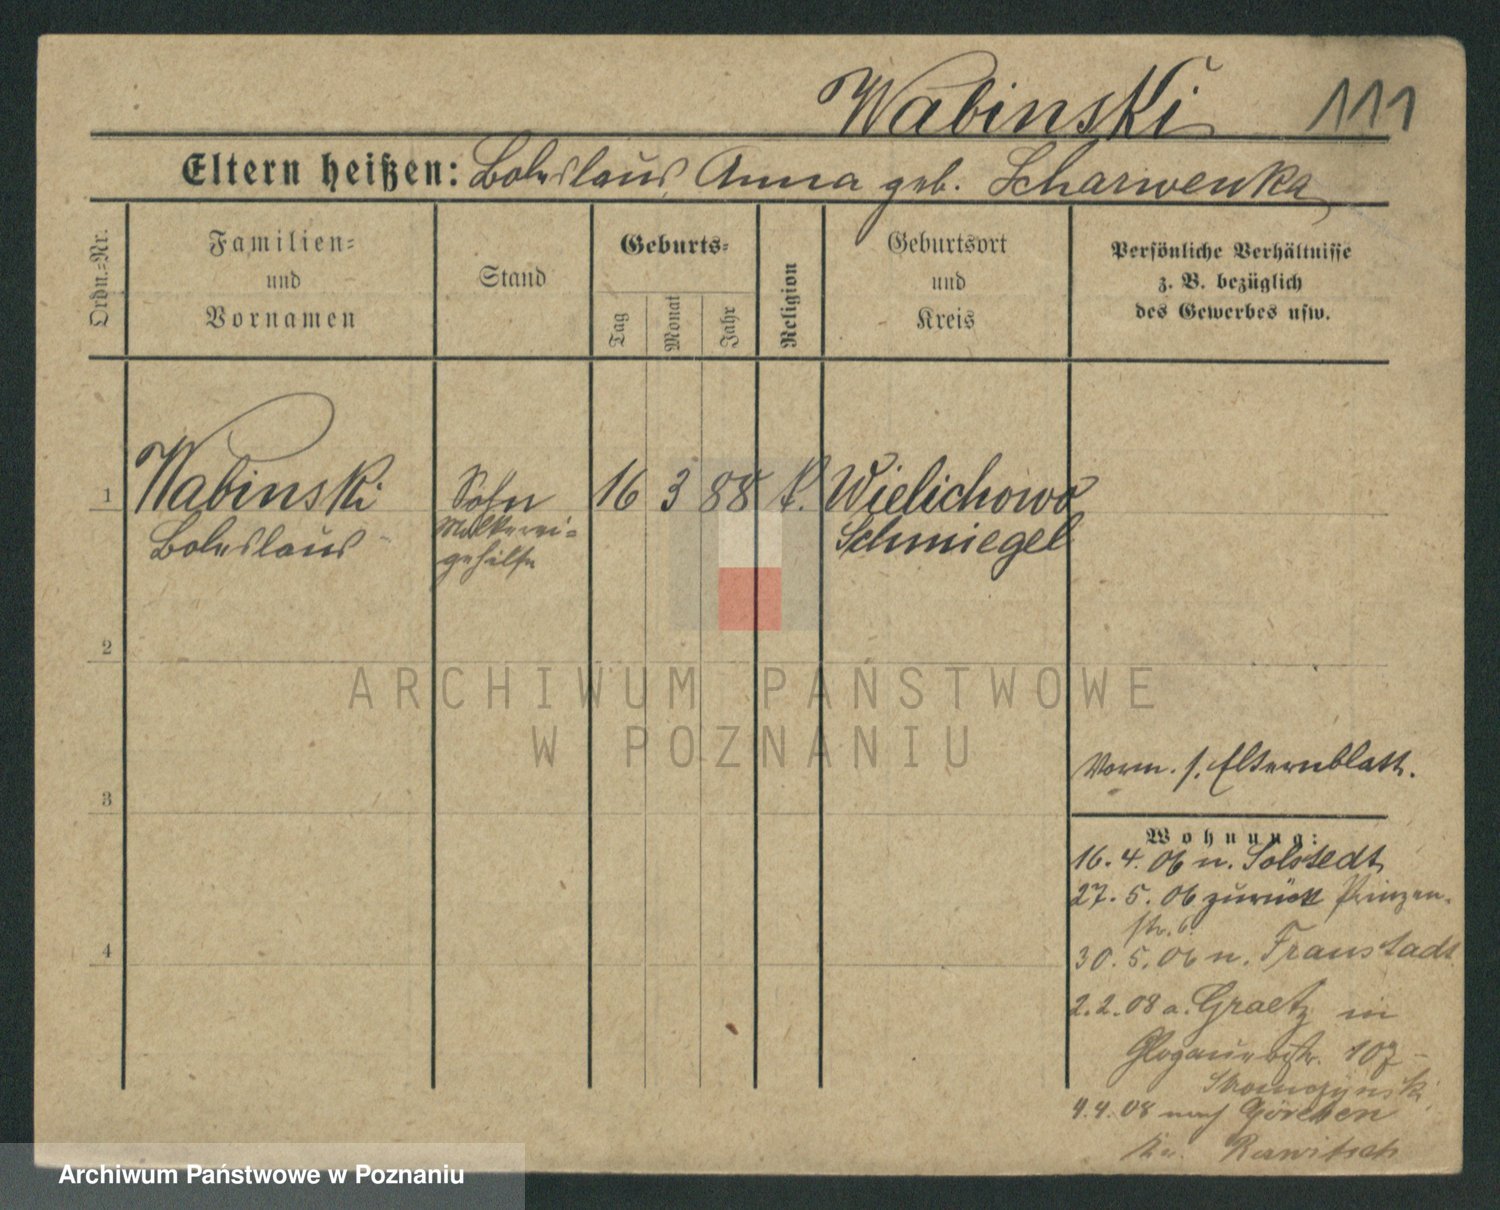 Wabinski 111
Eltern heißen: Boleslaus, Anna geb. Scharwenka
Ordn.-Nr.
Familien-
und
Vornamen
Stand
Geburts-
Tag
Monat
Jahr
Religion
Geburtsort
und
Kreis
Persönliche Verhältnisse
z. B. bezüglich
des Gewerbes usw.
1 Wabinski Sohn 16 3 88 k. Wielichowo
Boleslaus Molkerei- Schmiegel
gehilfe
2
ARCHIWUM PAŃSTWOWE
W POZNANIU
Vorm. s. Elternblatt.
3
Wohnung:
16. 4. 06 n.
27. 5. 06 zurück Prinzen-
str. 6.
4
30. 5. 06 n. Fraustadt
2. 2. 08 a. Graetz in
Glogauerstr. 107
4. 4. 08 nach Görchen
Kr. Rawitsch
Archiwum Państwowe w Poznaniu